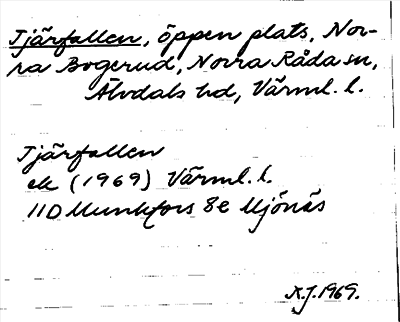 Tjärfallen, öppen plats, Nor-
ra Bogerud, Norra Råda sn,
Älvdals hd, Värml. l.
Tjärfallen
ek (1969) Värml. l.
11D Munkfors 8e Mjönäs
R.J. 1969.